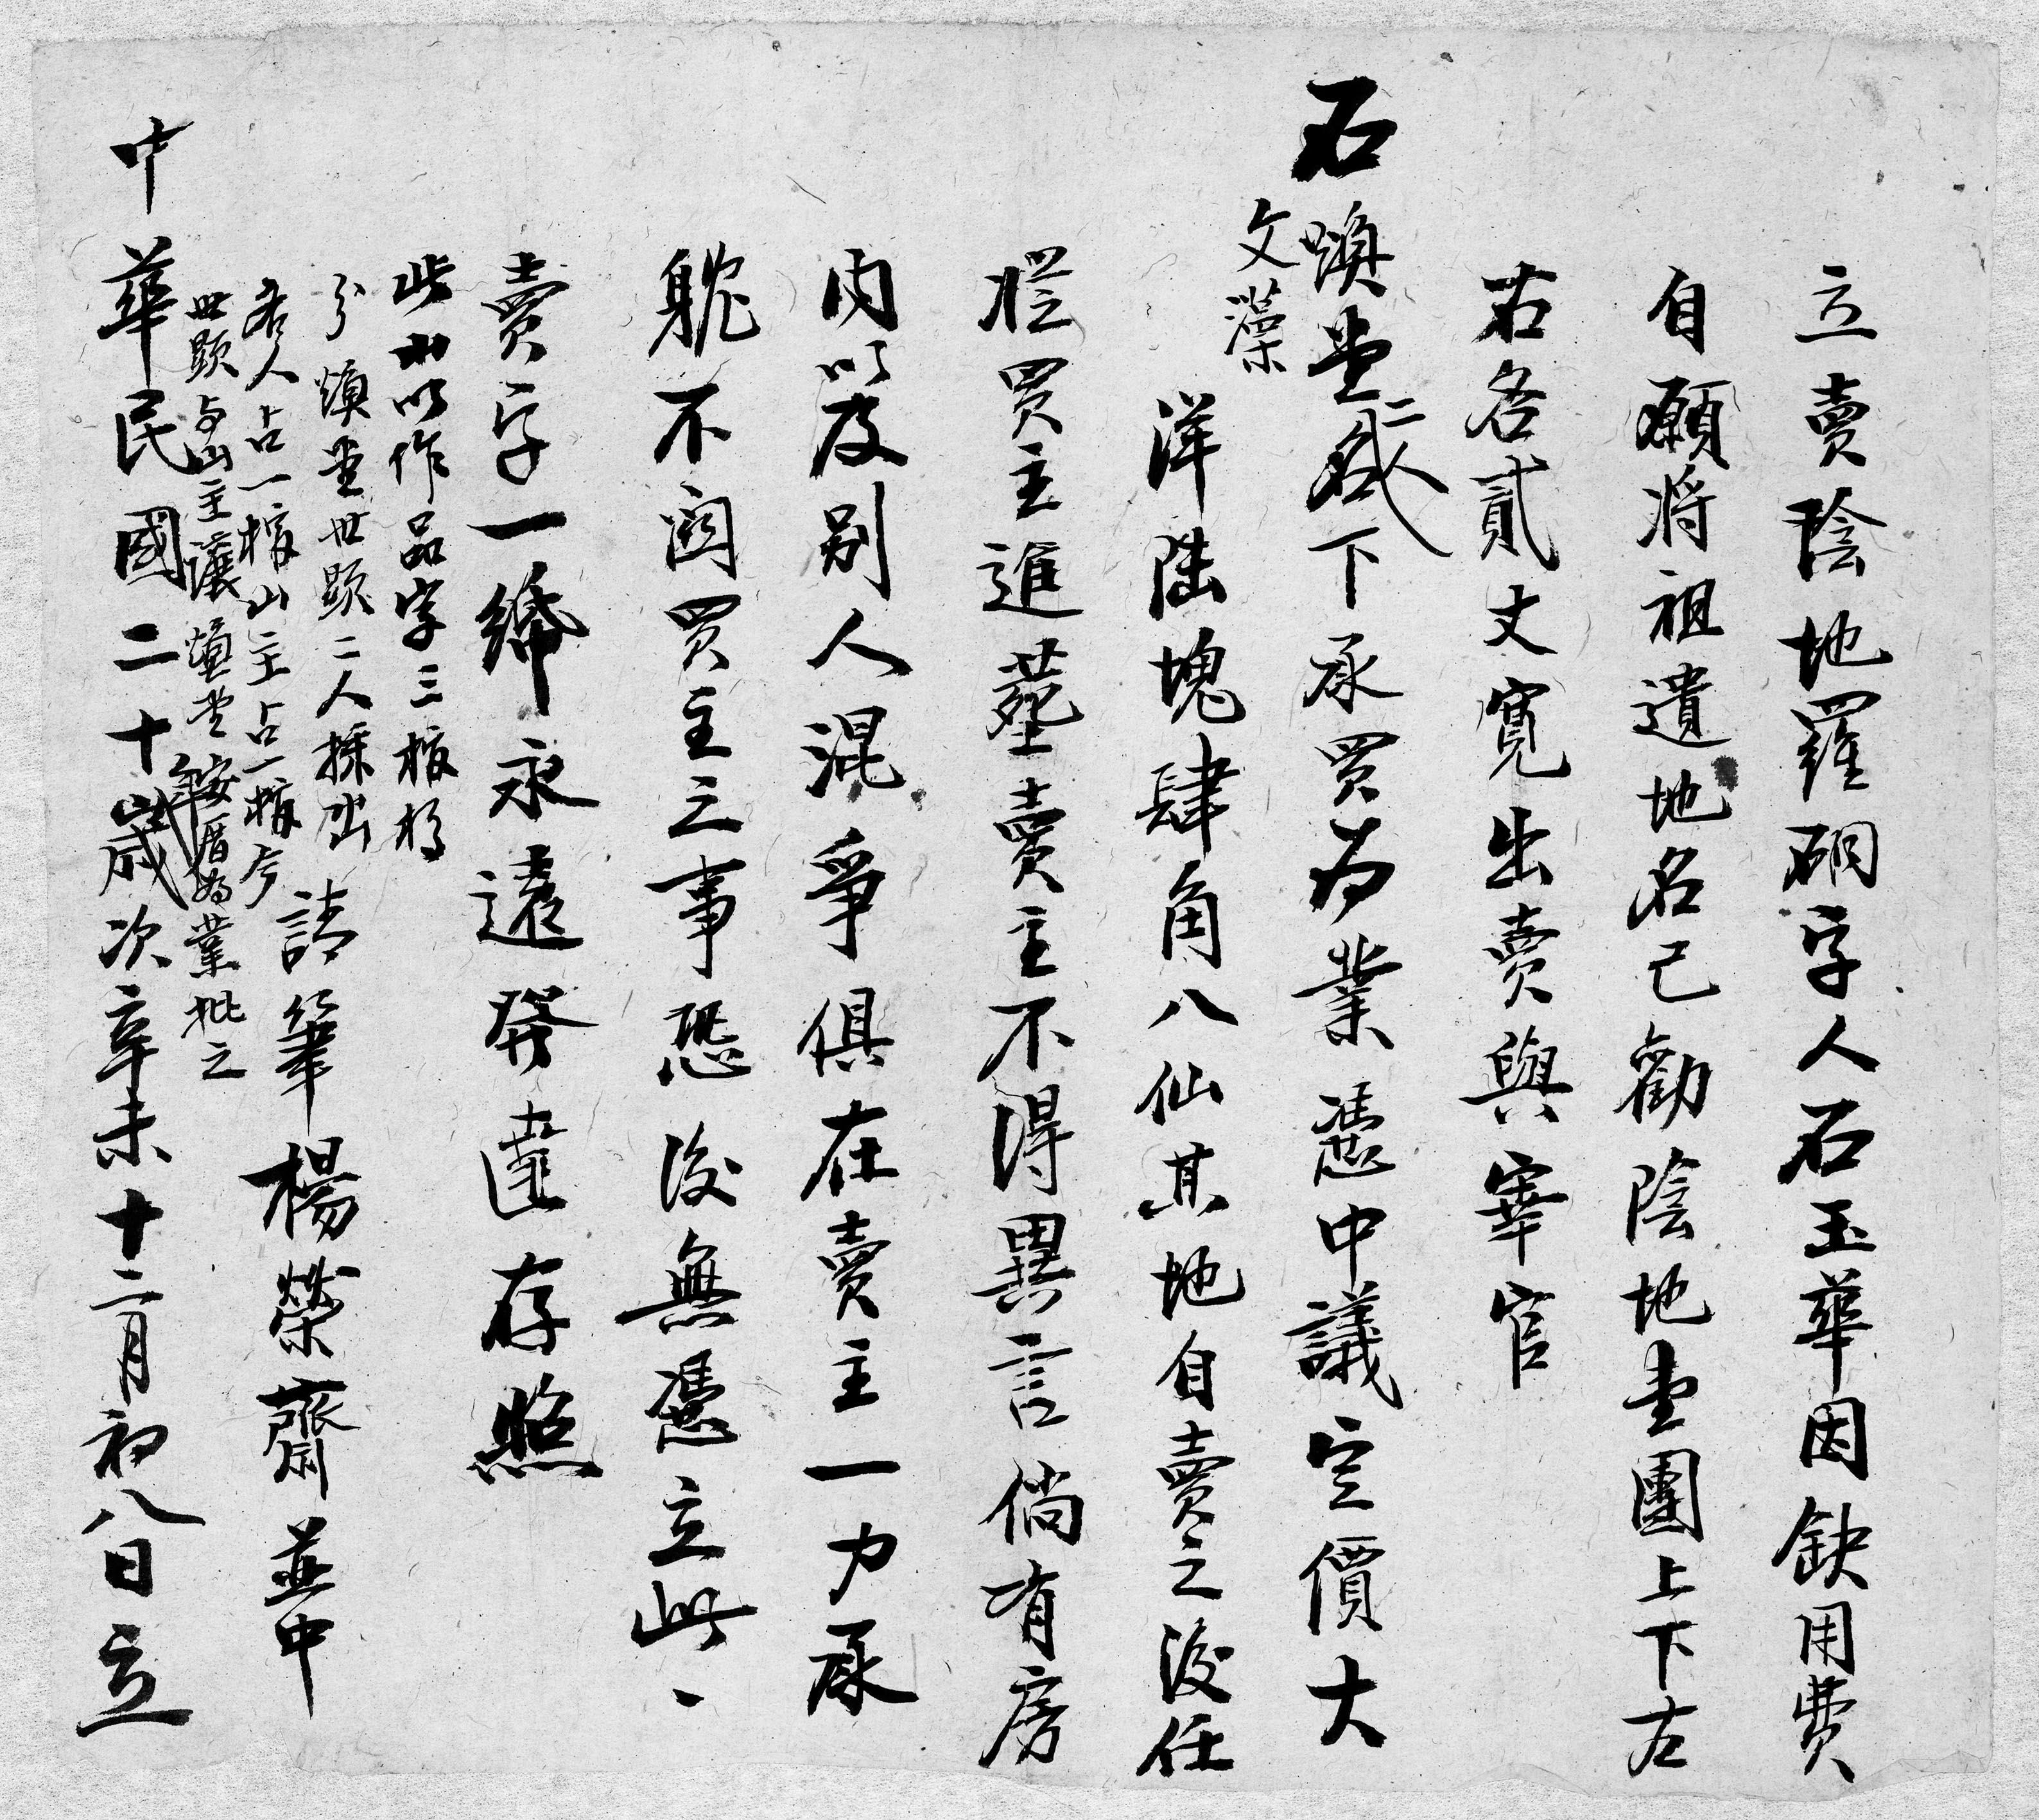 立賣陰地羅硐字人石玉華因缺用費
自願將祖遺地名己勸陰地壹團上下左
右各貳丈寬出賣與寨官
石煥堂二人下承買为業憑中議定價大
文藻
洋陆塊肆角八仙其地自賣之後任
从買主進塟賣主不得異言倘有房
内以及别人混爭俱在賣主一力承
躭不関買主之事恐後無憑立此一
賣字一紙永遠發達存照
此以作品字三棺材
分煥堂世顕二人採出
各人占一棺山主占一棺今
世顕与山主讓煥堂安厝为業批之
請筆楊榮齋並中
中華民國二十年歲次辛未十二月初八日立